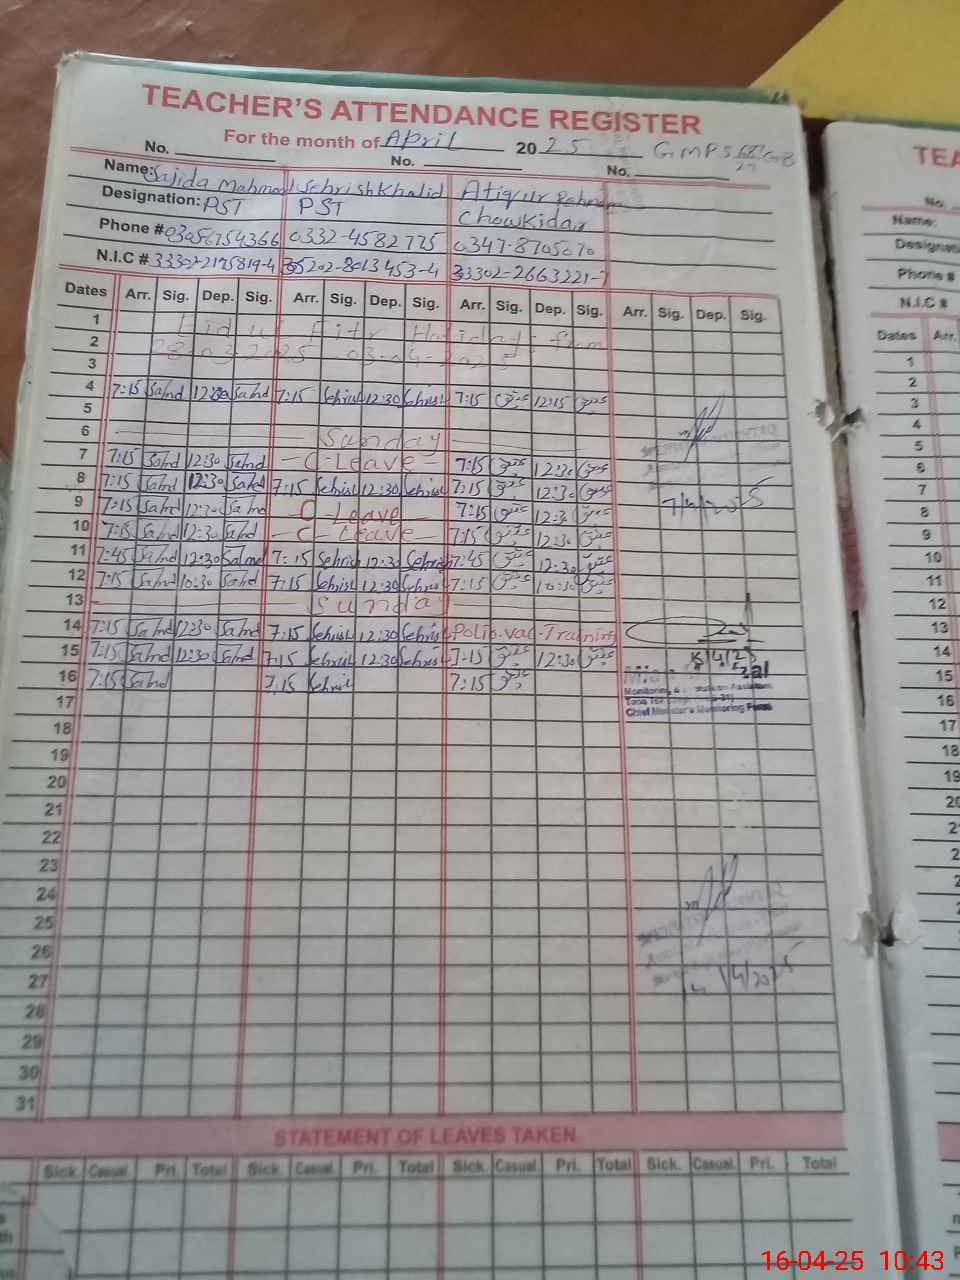 TEACHER'S ATTENDANCE REGISTER
For the month of April 2025 GMPS 681/27 GB
No. No. No.
Name: Sajida Mahmood Sehrish Khalid Atiqur Rehman
Designation: PST PST Chowkidar
Phone # 03056754366 0332-4582775 0347-8705070
N.I.C # 33302-2175819-4 35202-8013453-4 33302-2663221-7
Dates Arr. Sig. Dep. Sig. Arr. Sig. Dep. Sig. Arr. Sig. Dep. Sig. Arr. Sig. Dep. Sig.
1 Eid ul Fitr Holidays from
2 28-03-2025 03-04-2025
3
4 7:15 Sahd 12:30 Sahd 7:15 Sehrish 12:30 Sehrish 7:15 12:15
5
6 Sunday
7 7:15 Sahd 12:30 Sahd - C-Leave - 7:15 12:30
8 7:15 Sahd 12:30 Sahd 7:15 Sehrish 12:30 Sehrish 7:15 12:30 7/4/2025
9 7:15 Sahd 12:30 Sahd - C-Leave - 7:15 12:30
10 7:15 Sahd 12:30 Sahd - C-Leave - 7:15 12:30
11 7:45 Sahd 12:30 Sahd 7:15 Sehrish 12:30 Sehrish 7:45 12:30
12 7:15 Sahd 10:30 Sahd 7:15 Sehrish 12:30 Sehrish 7:15 10:30
13 Sunday
14 7:15 Sahd 12:30 Sahd 7:15 Sehrish 12:30 Sehrish Polio-vac-Training
15 7:15 Sahd 12:30 Sahd 7:15 Sehrish 12:30 Sehrish 7:15 12:30 15/4/25
16 7:15 Sahd 7:15 Sehrish 7:15
Monitoring
Chief Minister's Monitoring Force
17
18
19
20
21
22
23
24
25
26
27 14/4/2025
28
29
30
31
STATEMENT OF LEAVES TAKEN
Sick. Casual. Pri. Total Sick. Casual. Pri. Total Sick. Casual. Pri. Total Sick. Casual. Pri. Total
TEA
No.
Name:
Designati
Phone #
N.I.C #
Dates Arr.
1
2
3
4
5
6
7
8
9
10
11
12
13
14
15
16
17
18
19
16-04-25 10:43